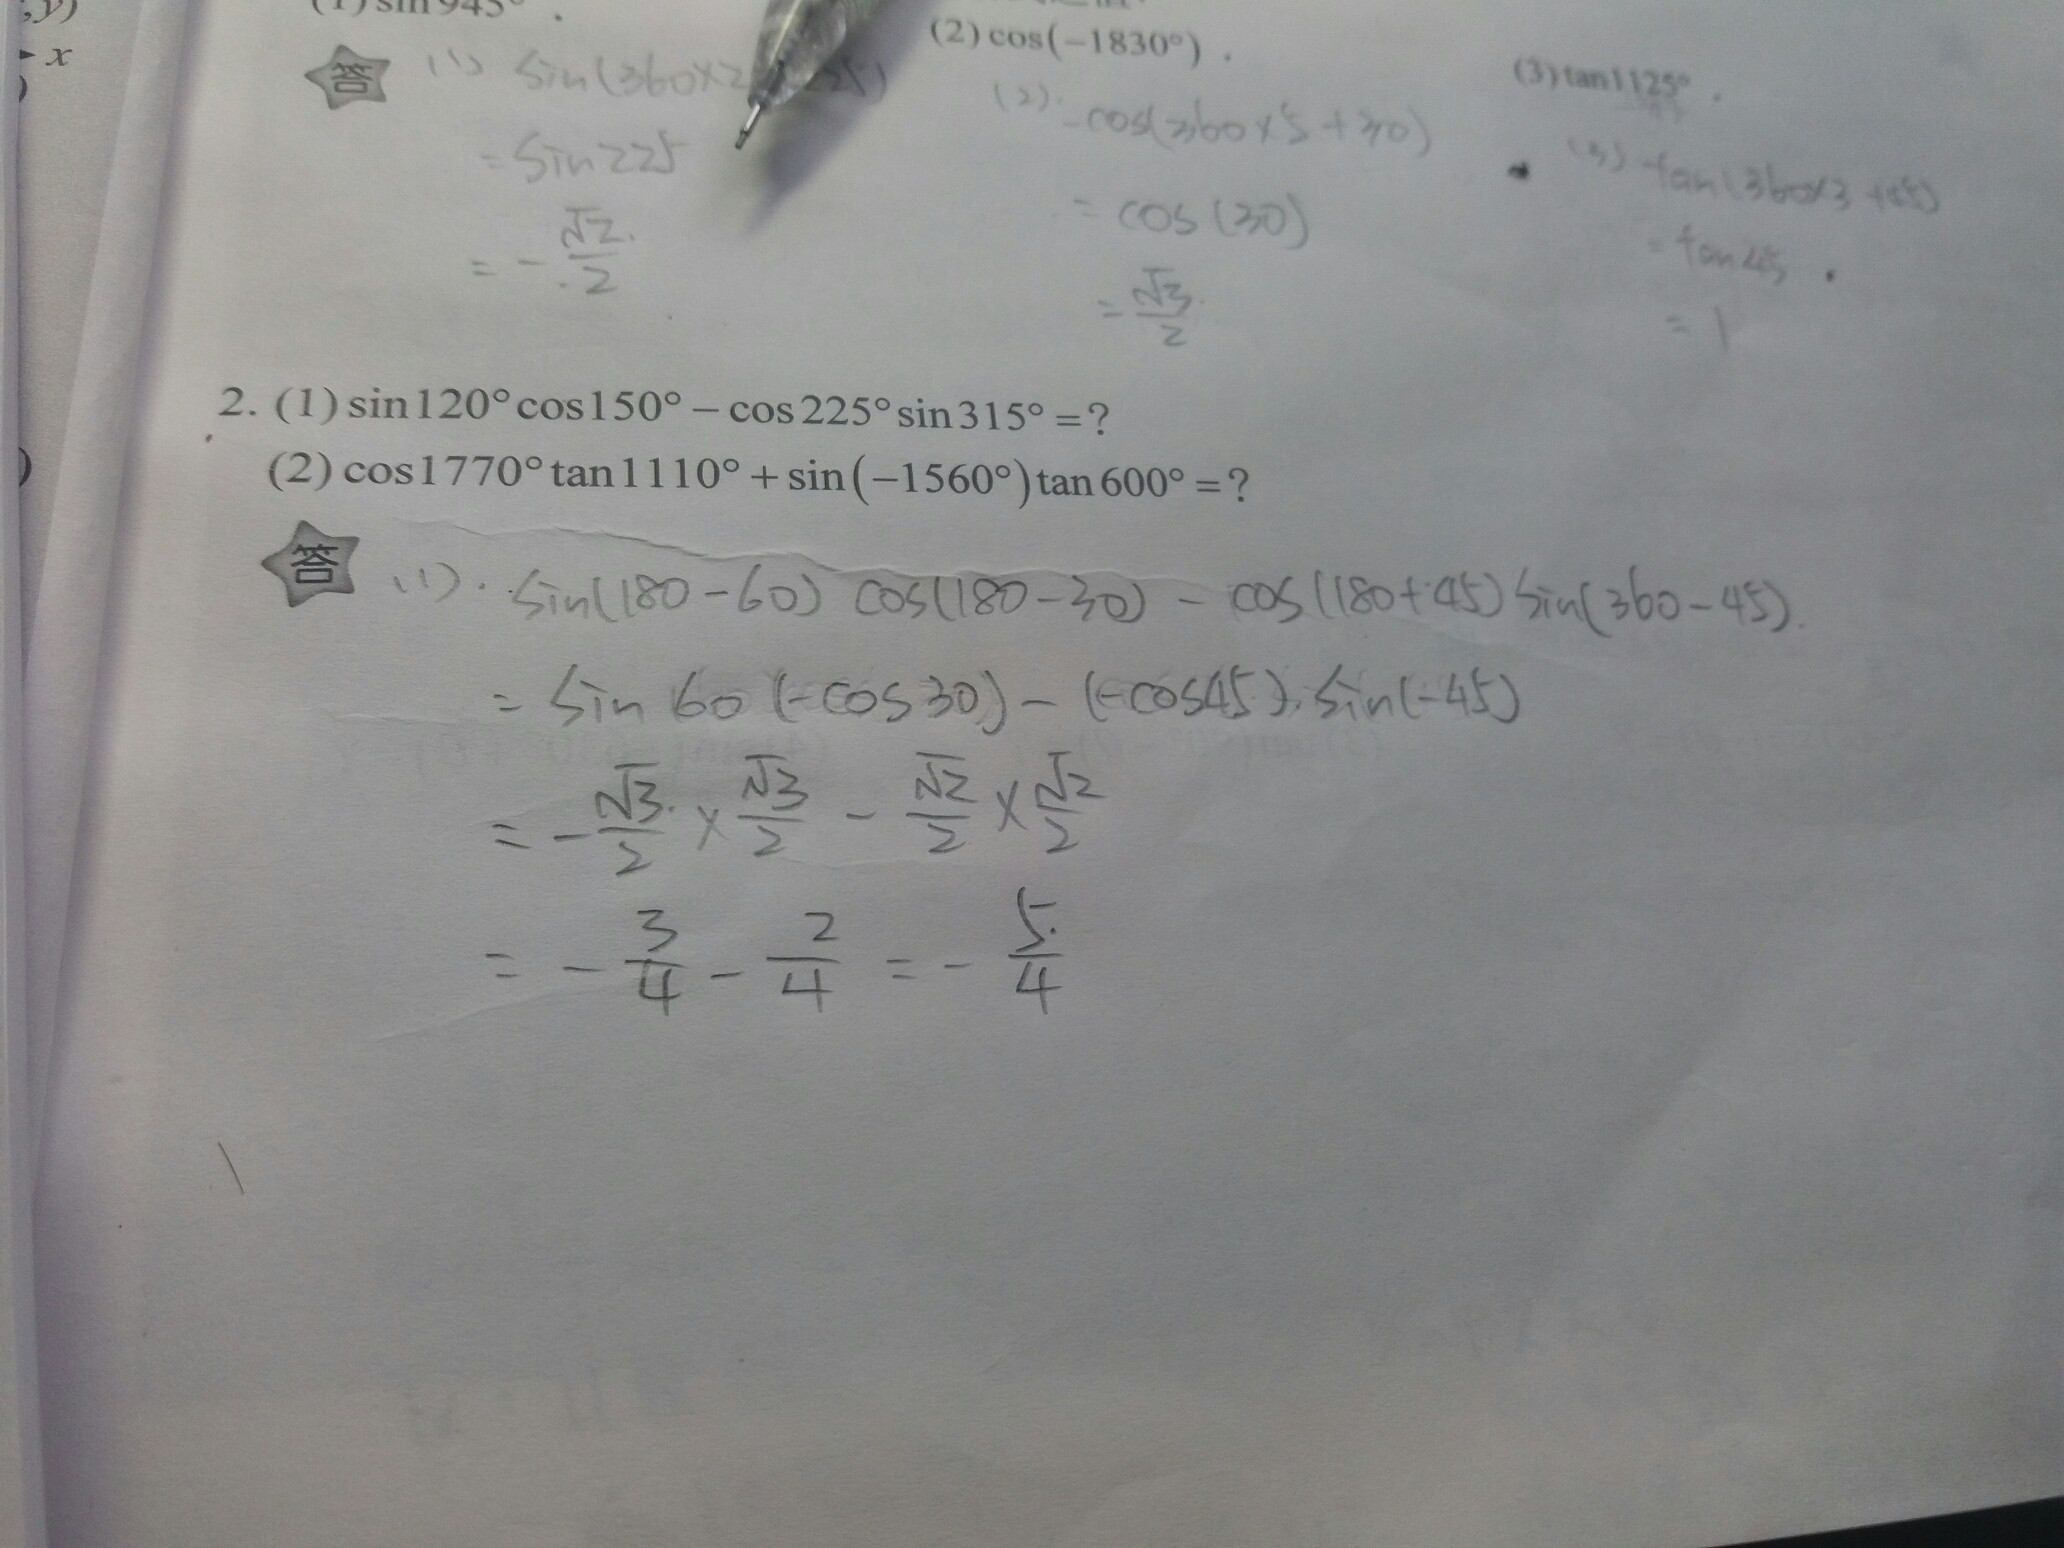 , y)
x
(1) sin 945° .
(2) cos(−1830°) .
(3) tan1125° .
答 (1) sin(360×2 225)
= sin 225
= - √2/2
(2) cos(360×5+30)
= cos (30)
= √3/2
(3) tan(360×3+45)
= tan 45
= 1
2. (1) sin120°cos150° − cos225°sin315° = ?
(2) cos1770°tan1110° + sin(−1560°)tan600° = ?
答 (1). sin(180-60) cos(180-30) - cos(180+45) sin(360-45).
= sin 60 (-cos 30) - (-cos45). sin(-45)
= - √3/2 × √3/2 - √2/2 × √2/2
= - 3/4 - 2/4 = - 5/4